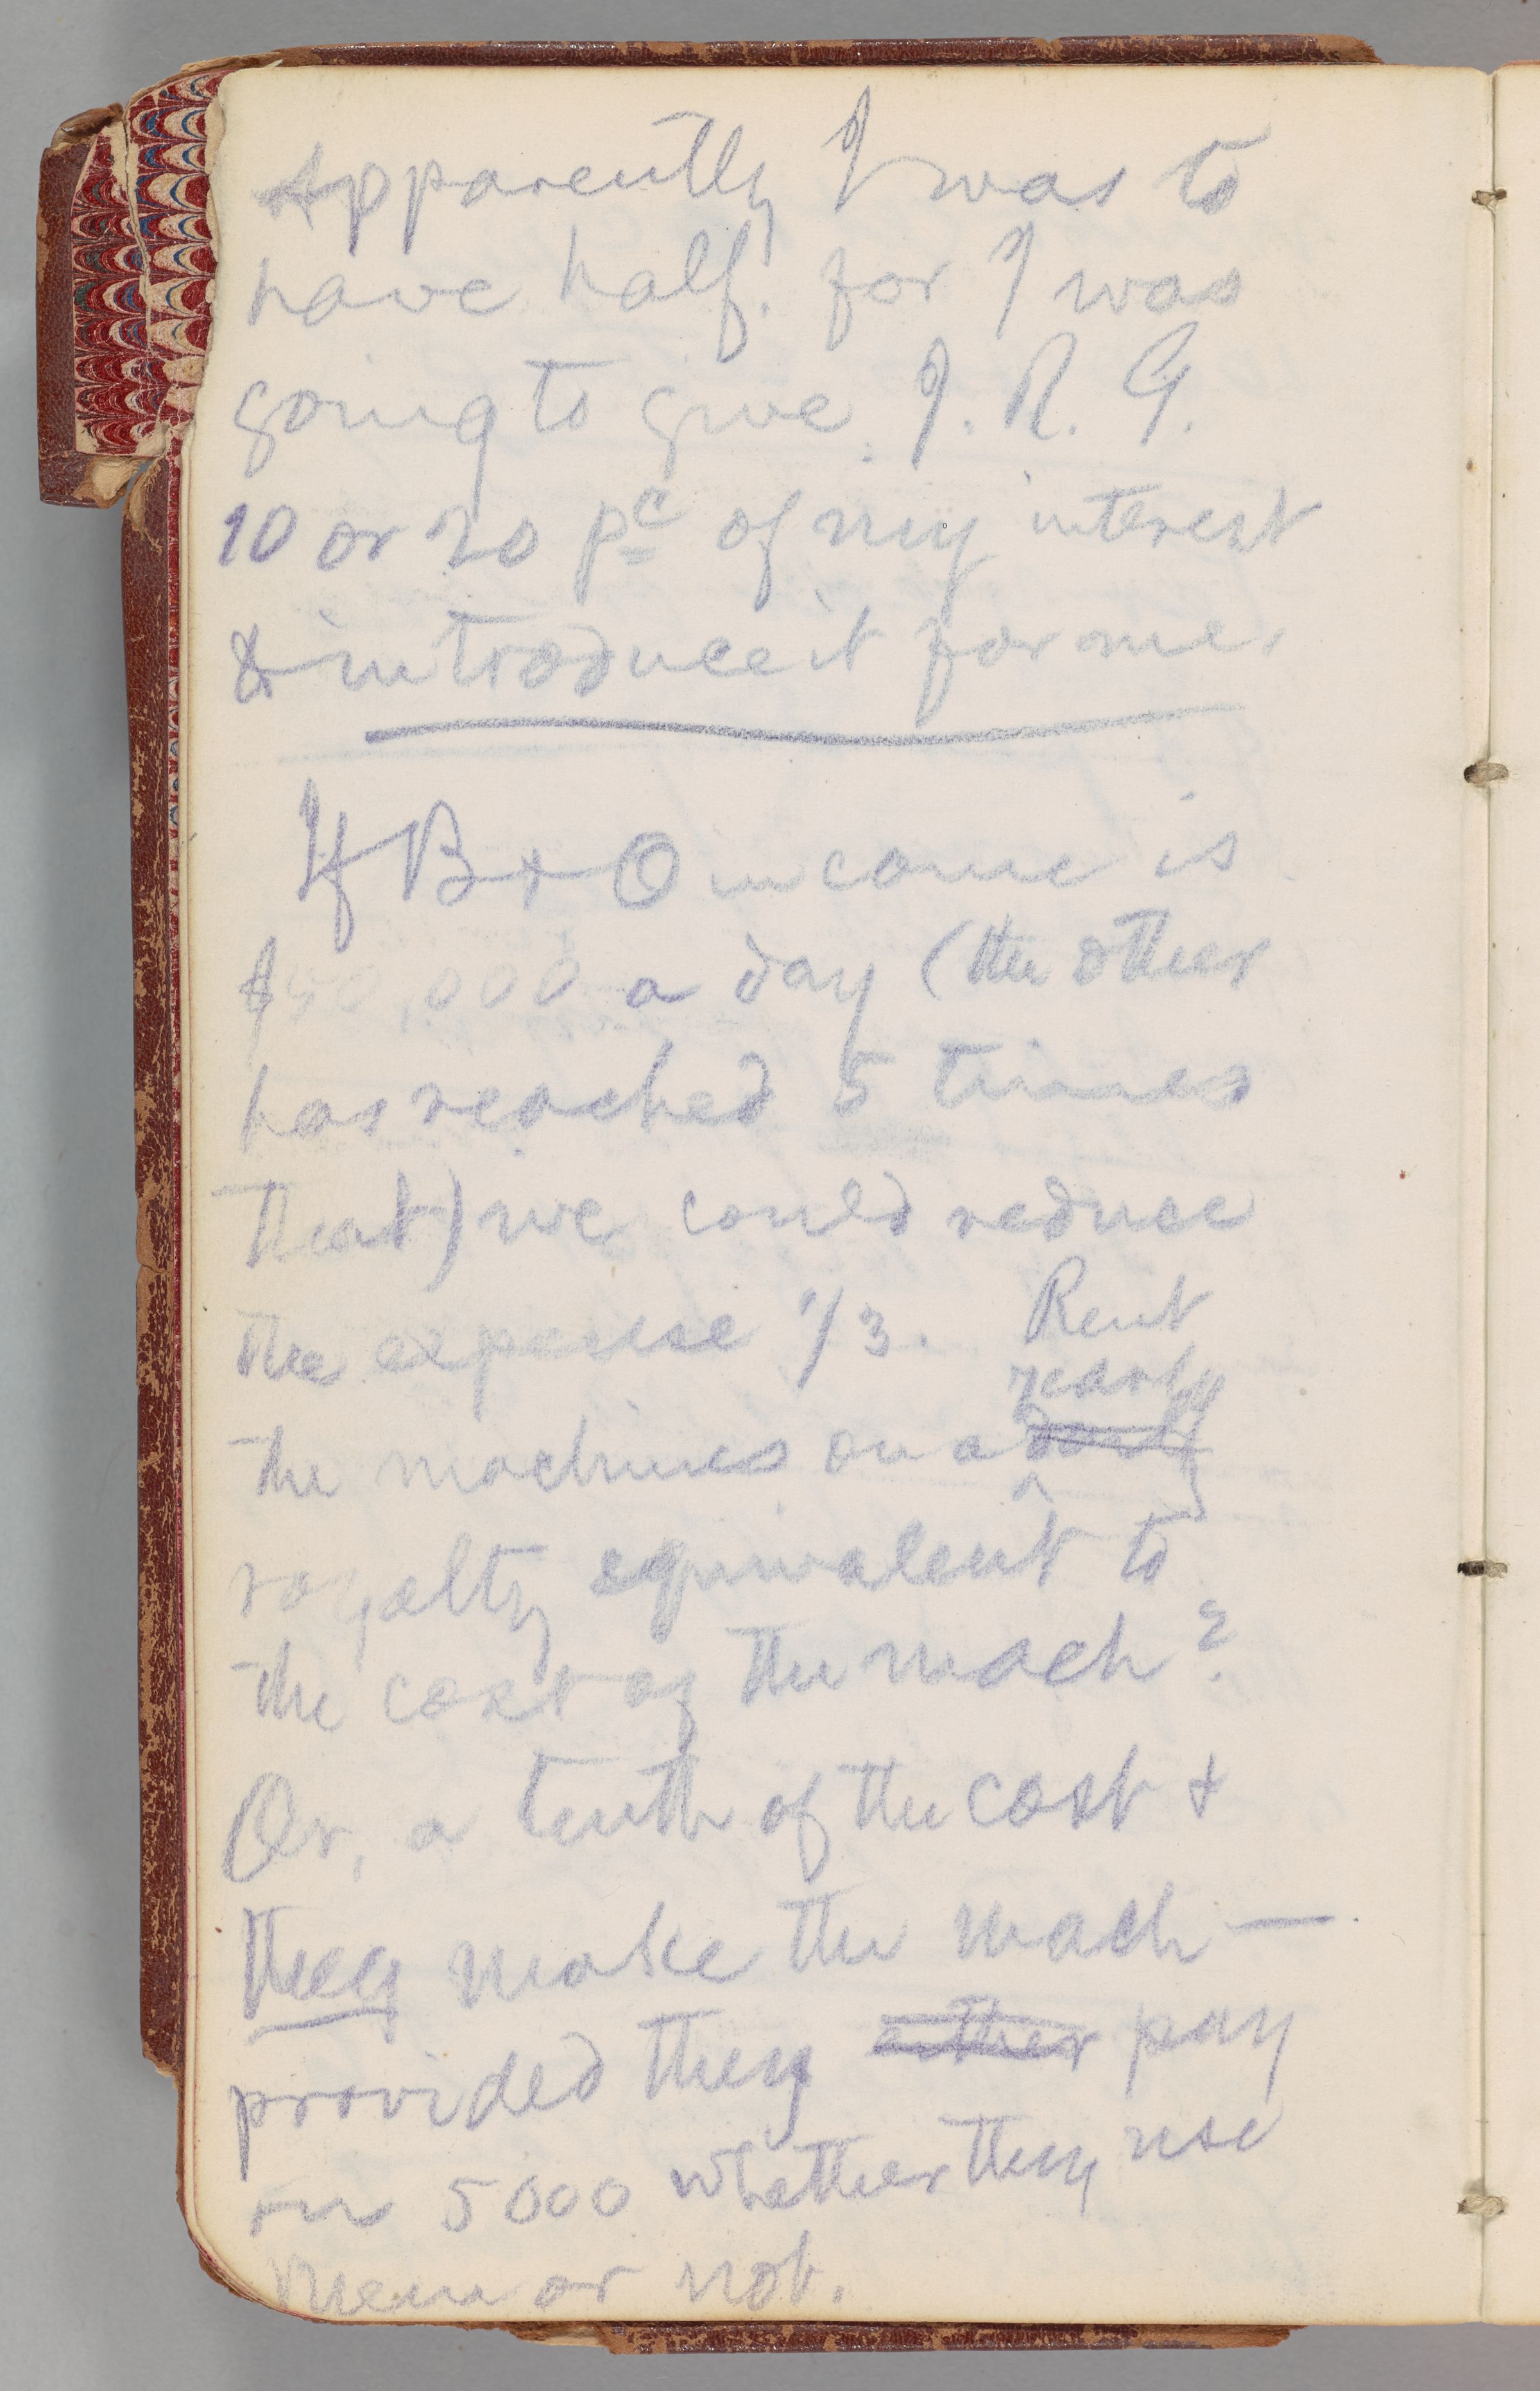 Apparently I was to
have half, for I was
going to give J. R. G.
10 or 20 pc of my interest
& introduce it for me.
If B + O income is
$50,000 a day (the other
has reached 5 times
that) we could reduce
the expense 1/3. Rent
yearly
the machines on a daily
royalty equivalent to
the cost of the mach?
Or, a tenth of the cost +
they make the mach —
provided they either pay
on 5000 whether they use
them or not.